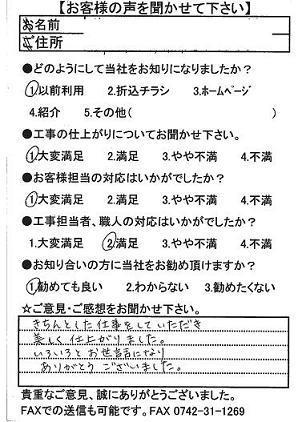 【お客様の声を聞かせて下さい】
お名前
ご住所
●どのようにして当社をお知りになりましたか？
1.以前利用 2.折込チラシ 3.ホームページ
4.紹介 5.その他( )
●工事の仕上がりについてお聞かせ下さい。
1.大変満足 2.満足 3.やや不満 4.不満
●お客様担当の対応はいかがでしたか？
1.大変満足 2.満足 3.やや不満 4.不満
●工事担当者、職人の対応はいかがでしたか？
1.大変満足 2.満足 3.やや不満 4.不満
●お知り合いの方に当社をお勧め頂けますか？
1.勧めても良い 2.わからない 3.勧めたくない
☆ご意見・ご感想をお聞かせ下さい。
きちんとした仕事をしていただき
美しく仕上がりました。
いろいろとお世話になり
ありがとうございました。
貴重なご意見、誠にありがとうございました。
FAXでの送信も可能です。FAX 0742-31-1269